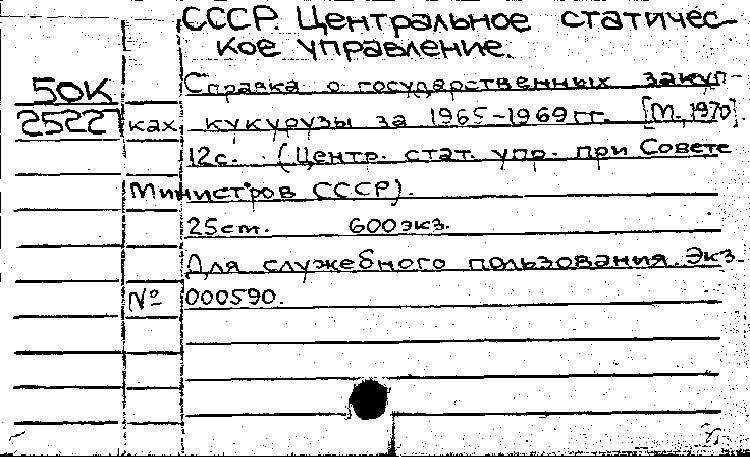 СССР. Центральное статичес-
кое управление.
50К Справка о государственных закуп-
25227 ках кукурузы за 1965-1969 гг. [М., 1970].
12с. (Центр. стат. упр. при Совете
Министров СССР).
25см. 600 экз.
Для служебного пользования. Экз.
№ 000590.